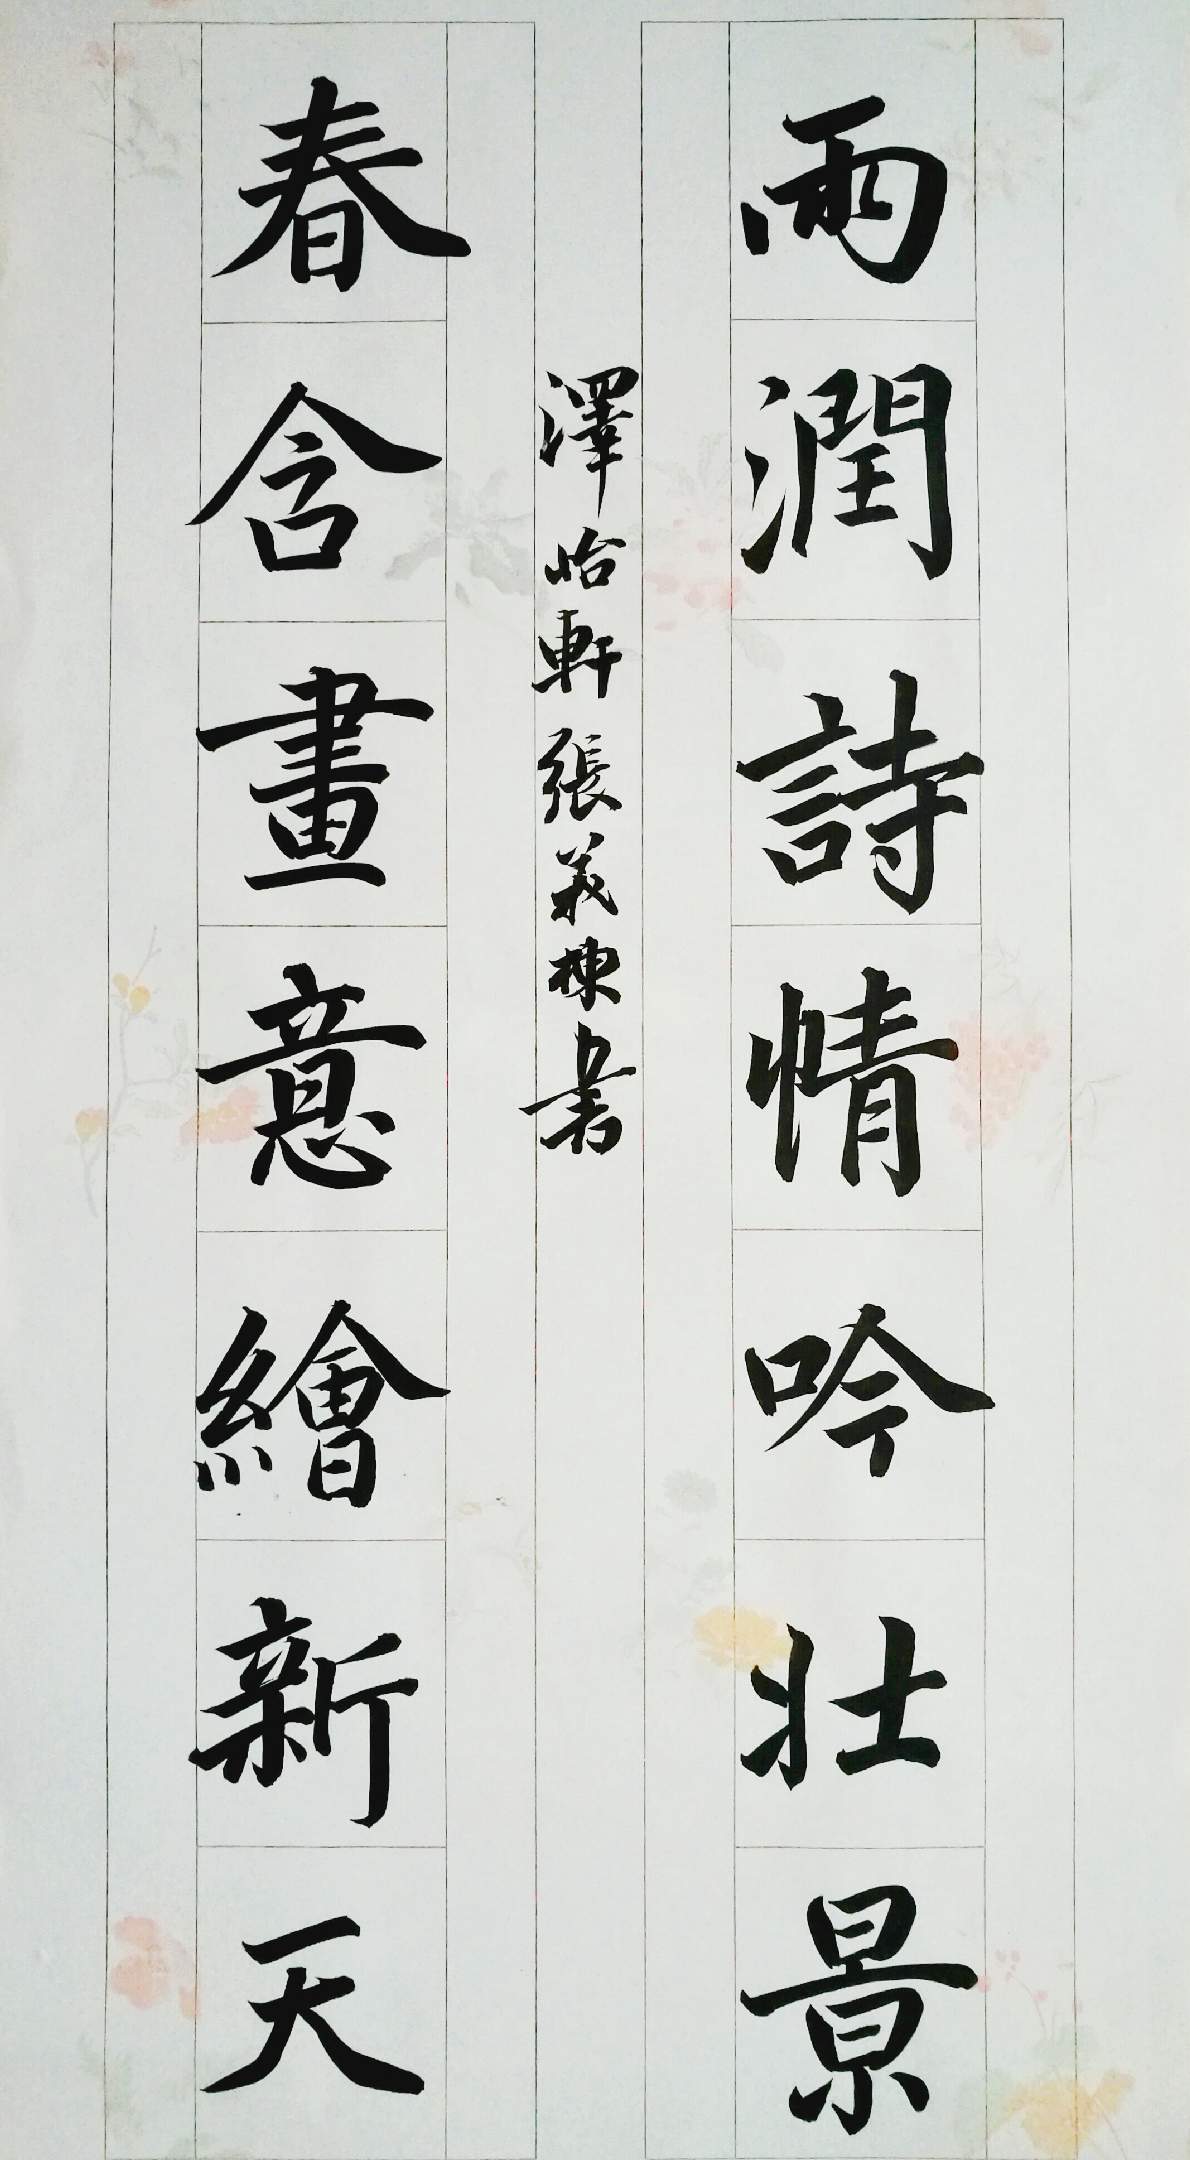 雨潤詩情吟壯景
澤怡軒張義棟書
春含畫意繪新天